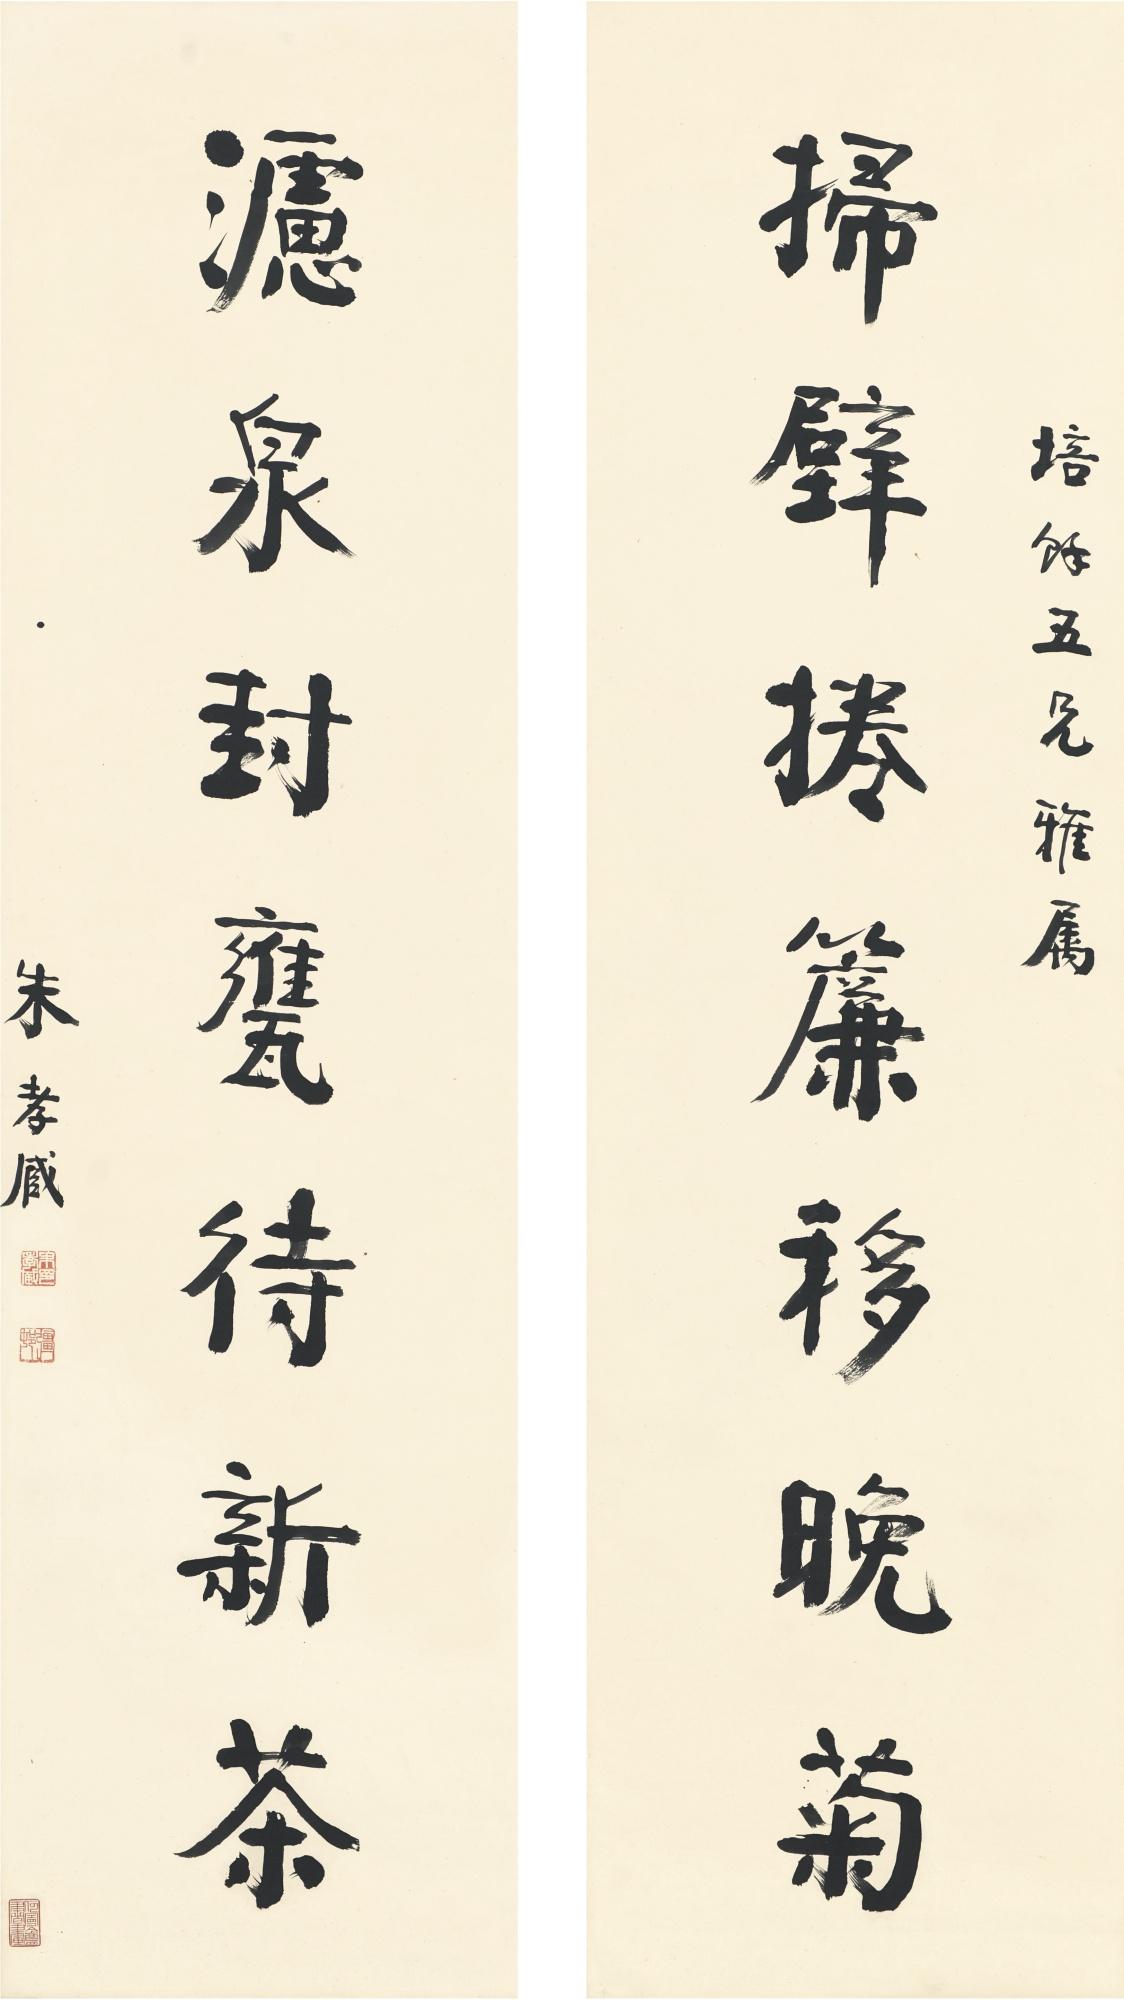 培餘五兄雅屬
掃壁捲簾移晚菊
濾泉封甕待新茶
朱孝臧